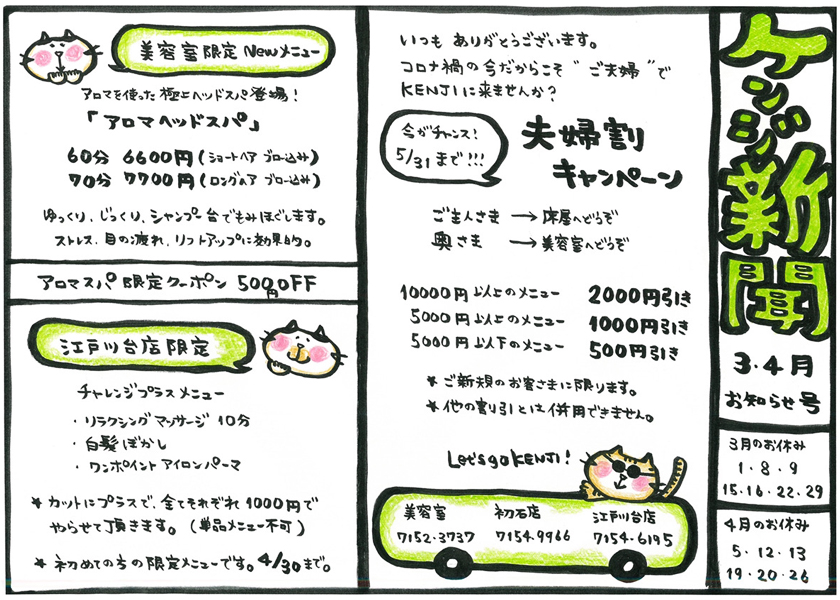 ケンジ新聞
3・4月
お知らせ号
3月のお休み
1・8・9
15・16・22・29
4月のお休み
5・12・13
19・20・26
いつも ありがとうございます。
コロナ禍の今だからこそ"ご夫婦"で
KENJIに来ませんか?
今がチャンス!
5/31まで!!!
夫婦割
キャンペーン
ご主人さま → 床屋へどうぞ
奥さま → 美容室へどうぞ
10000円以上のメニュー 2000円引き
5000円以上のメニュー 1000円引き
5000円以下のメニュー 500円引き
* ご新規のお客さまに限ります。
* 他の割り引とは併用できません。
Let's go KENJI!
美容室 初石店 江戸川台店
7152-3737 7154-9966 7154-6195
美容室限定 Newメニュー
アロマを使った極上ヘッドスパ登場!
「アロマヘッドスパ」
60分 6600円(ショートヘア ブロー込み)
70分 7700円(ロングヘア ブロー込み)
ゆっくり、じっくり、シャンプー台でもみほぐします。
ストレス、目の疲れ、リフトアップに効果的。
アロマスパ限定クーポン 500円OFF
江戸川台店限定
チャレンジプラスメニュー
・リラクシングマッサージ 10分
・白髪ぼかし
・ワンポイントアイロンパーマ
* カットにプラスで、全てそれぞれ1000円で
やらせて頂きます。(単品メニュー不可)
* 初めての方の限定メニューです。4/30まで。